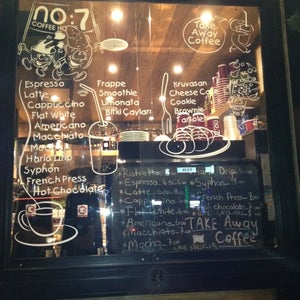 no:7
COFFEE
Take
Away
Coffee
Espresso
Latte
Cappuccino
Flat White
Americano
Macchiato
Mocha
Hario Drip
Syphon
French Press
Hot Chocolate
Frappe
Smoothie
Limonata
Bitki Çayları
Kruvasan
Cheese
Cookie
Brownie
Tartolet
Espresso
Syphon
Latte
Cappuccino
French Press
Flat White
chocolate
Americano
TAKE AWAY
Macchiato
Coffee
Mocha